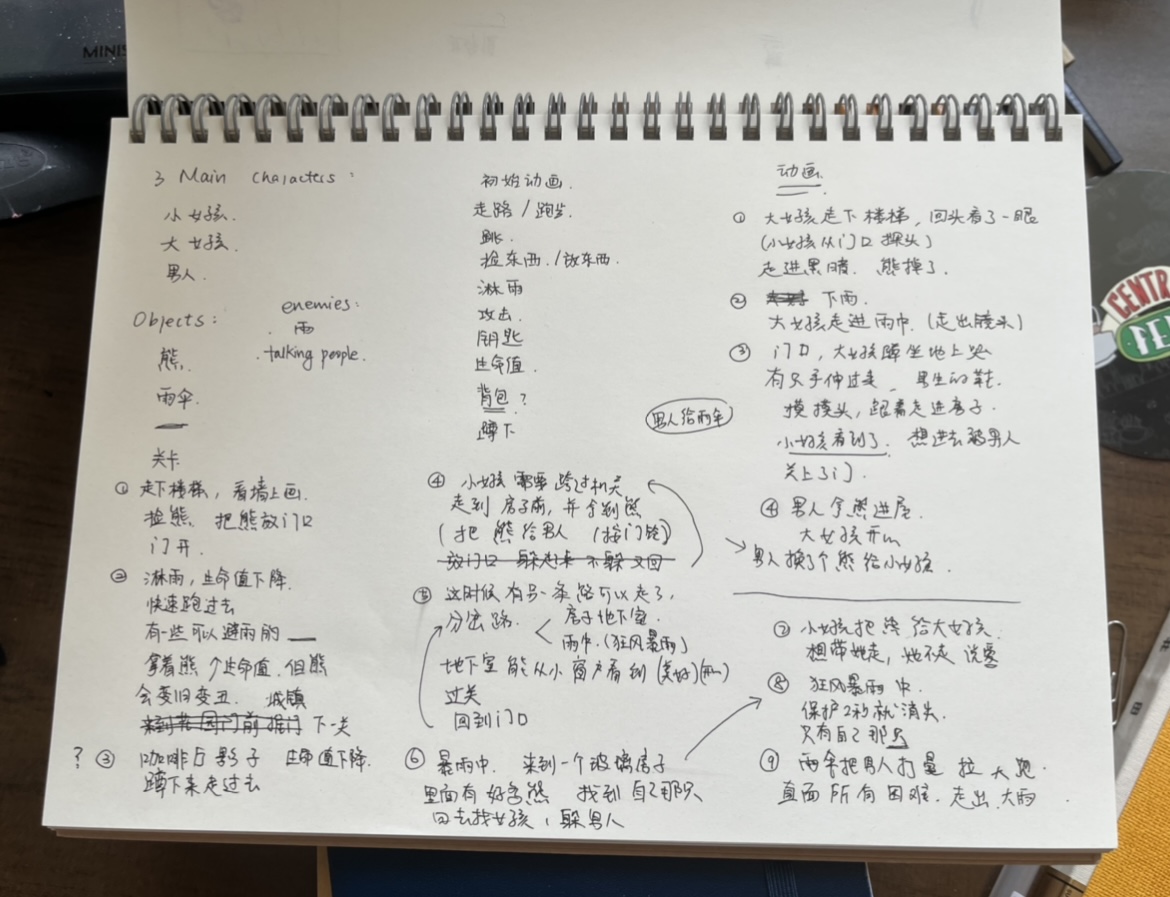 MINIS
3 Main characters:
小女孩.
大女孩.
男人.
Objects:
熊.
雨伞.
enemies:
. 雨
. talking people.
关卡
① 走下楼梯, 看墙上画.
捡熊. 把熊放门口
门开.
② 淋雨, 生命值下降.
快速跑过去
有一些可以避雨的
拿着熊 个生命值. 但熊
会变旧变丑. 城镇
下一关
? ③ 咖啡店 影子 生命值下降.
蹲下来走过去
初始动画.
走路 / 跑步.
跳.
捡东西. / 放东西.
淋雨
攻击.
钥匙
生命值.
背包?
蹲下
④ 小女孩 需要 跨过机关
走到 房子前, 并拿到熊
(把 熊给男人 (按门铃)
放门口 躲起来 不躲 又回
⑤ 这时候 有另一条路可以走了,
分岔路. < 房子地下室.
雨中. (狂风暴雨)
地下室 能从小窗户看到 (美好)
过关
回到门口
⑥ 暴雨中. 来到一个玻璃房子
里面有好多熊 找到自己那只
回去找女孩, 躲男人
动画.
① 大女孩走下楼梯, 回头看了一眼
(小女孩从门口探头)
走进黑暗. 熊掉了.
② 下雨.
大女孩走进雨中. (走出镜头)
③ 门口, 大女孩蹲坐地上哭
有只手伸过来, 男生的鞋.
摸摸头, 跟着走进房子.
小女孩看到了. 想进去被男人
关上了门.
男人给雨伞
④ 男人拿熊进屋.
大女孩开心
男人换了个熊给小女孩.
⑦ 小女孩把熊给大女孩.
想带她走, 她不走
⑧ 狂风暴雨中.
保护2秒就消失.
只有自己那只
⑨ 雨伞把男人打晕 拉 大 跑.
直面所有困难. 走出大雨.
CENTRAL
PE